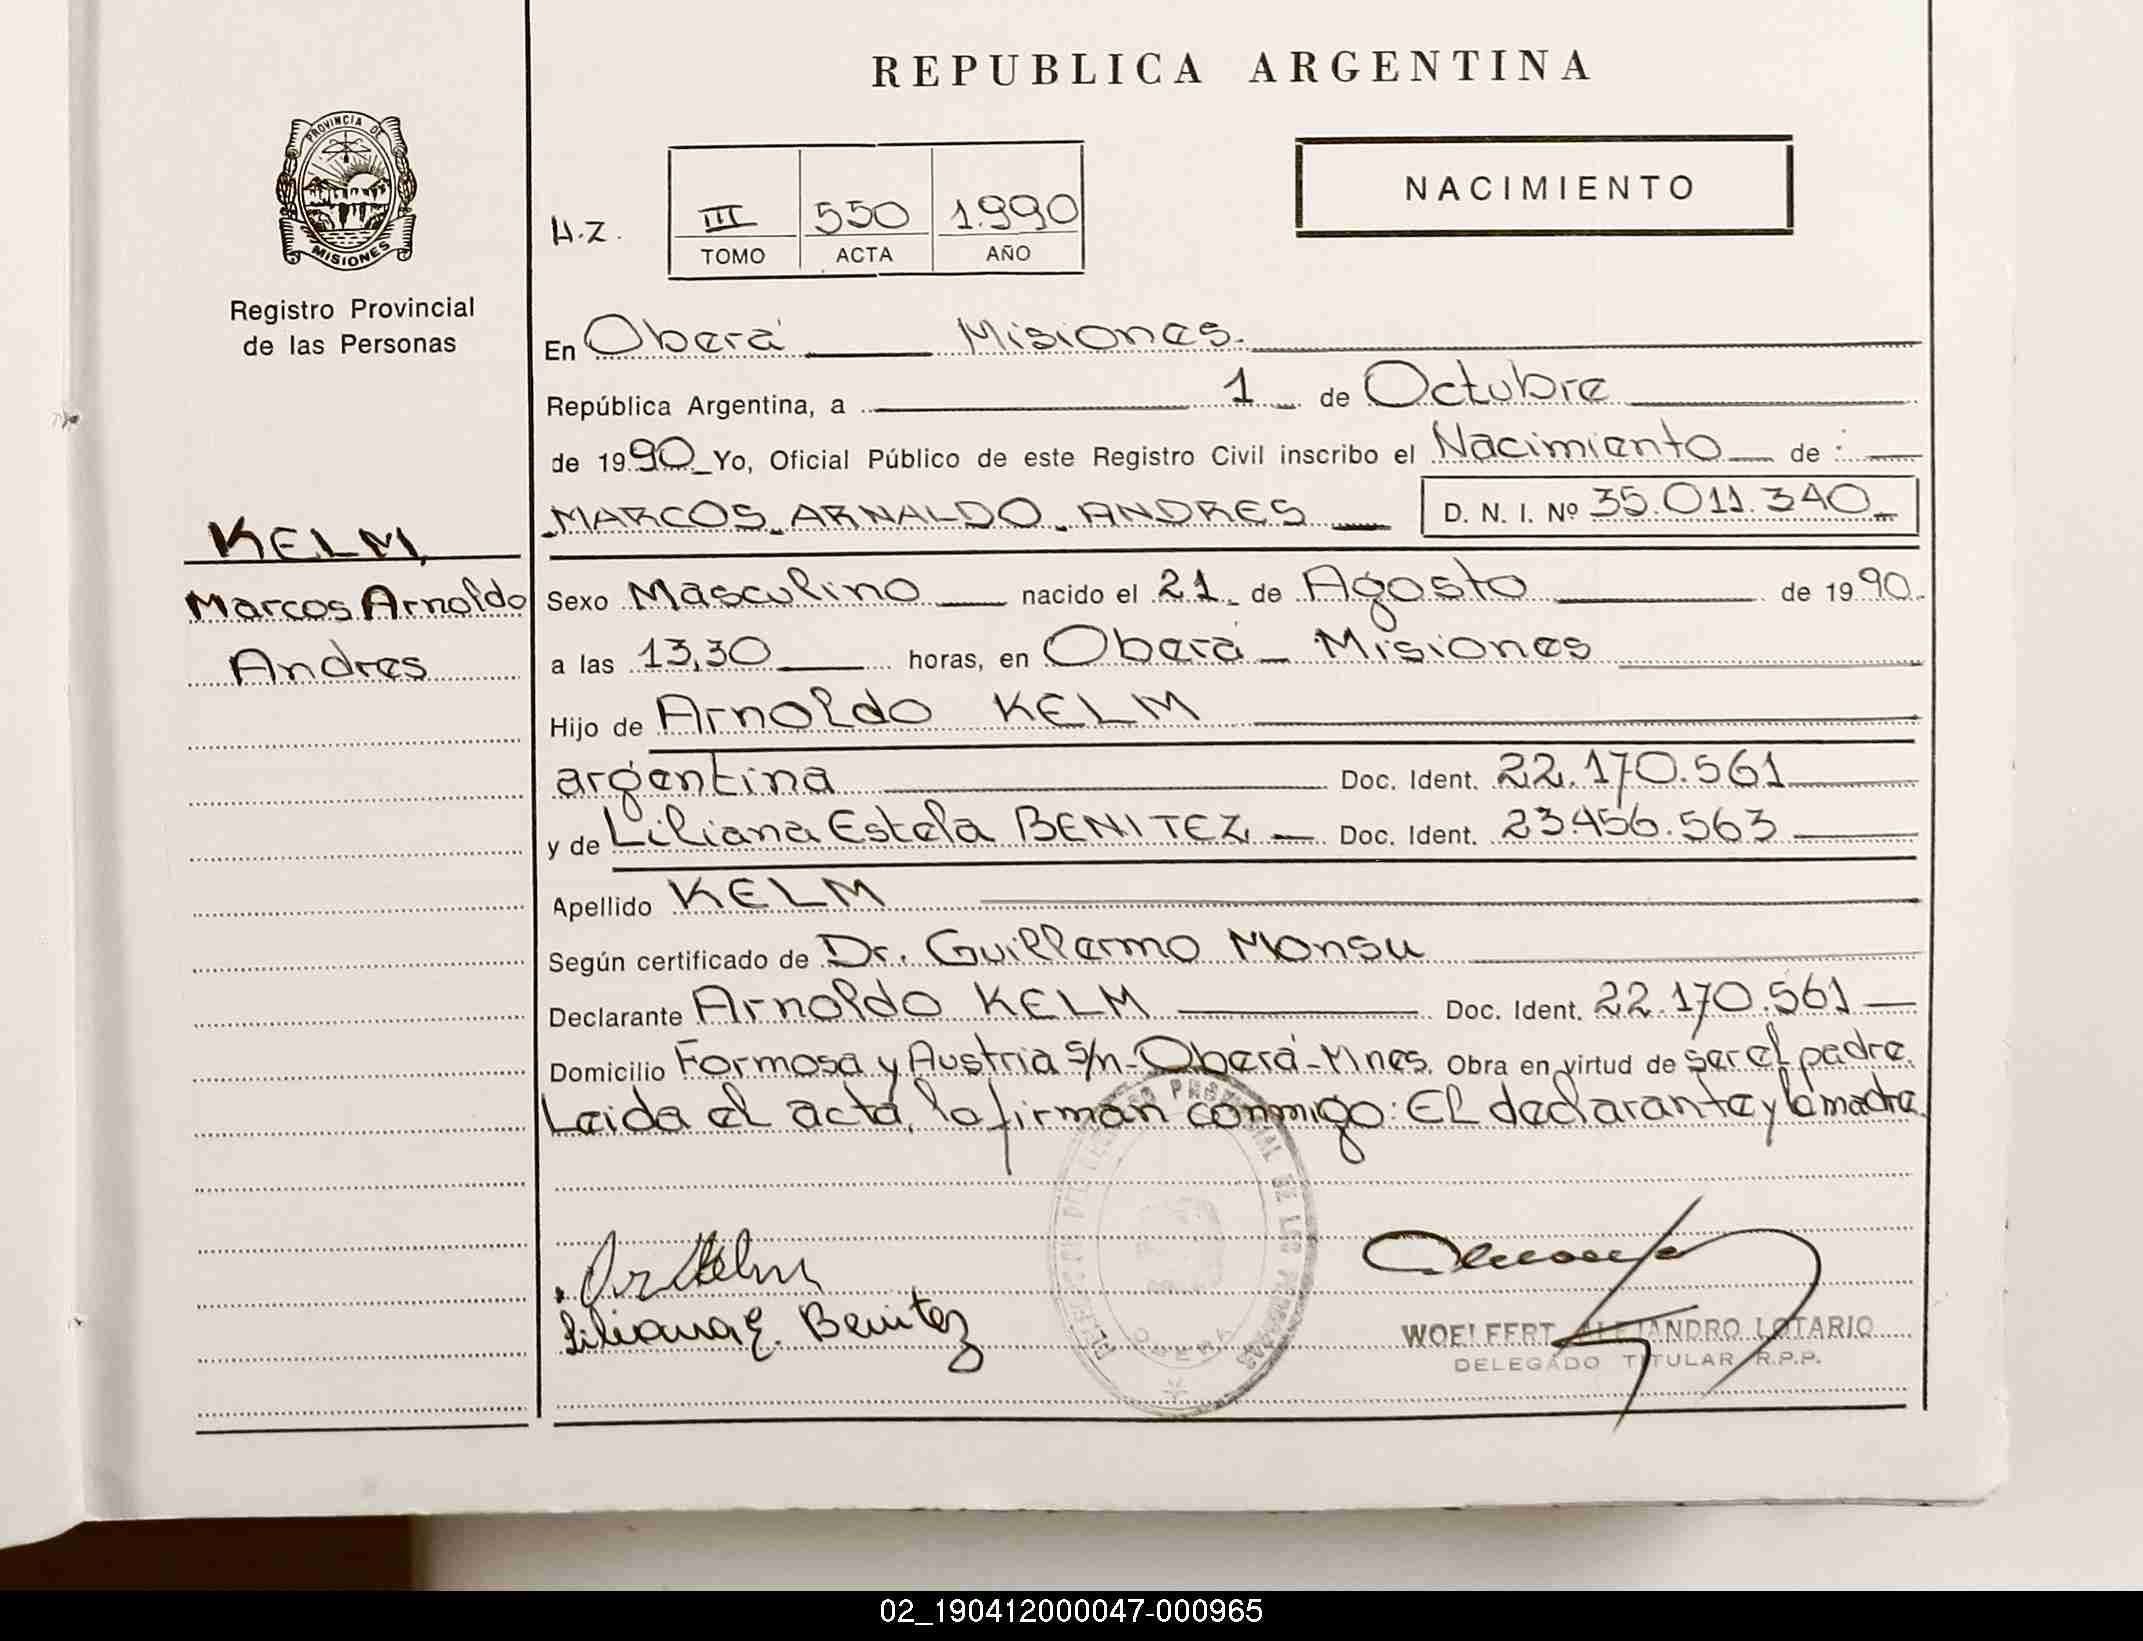 REPUBLICA ARGENTINA
PROVINCIA DE
MISIONES
Registro Provincial
de las Personas
H.Z.
III 550 1.990
TOMO ACTA AÑO
NACIMIENTO
En Oberá Misiones.
República Argentina, a 1 de Octubre
de 1990 Yo, Oficial Público de este Registro Civil inscribo el Nacimiento de :
MARCOS ARNALDO ANDRES D. N. I. Nº 35.011.340
KELM
Marcos Arnoldo
Andres
Sexo Masculino nacido el 21 de Agosto de 1990
a las 13,30 horas, en Oberá - Misiones
Hijo de Arnoldo KELM
argentina Doc. Ident. 22.170.561
y de Liliana Estela BENITEZ Doc. Ident. 23.456.563
Apellido KELM
Según certificado de Dr. Guillermo Monsu
Declarante Arnoldo KELM Doc. Ident. 22.170.561
Domicilio Formosa y Austria s/n - Oberá - Mnes. Obra en virtud de ser el padre.
Leida el acta, la firman conmigo: El declarante y la madre.
Liliana E. Benitez
OBERA
WOELFERT ALEJANDRO LOTARIO
DELEGADO TITULAR R.P.P.
02_190412000047-000965